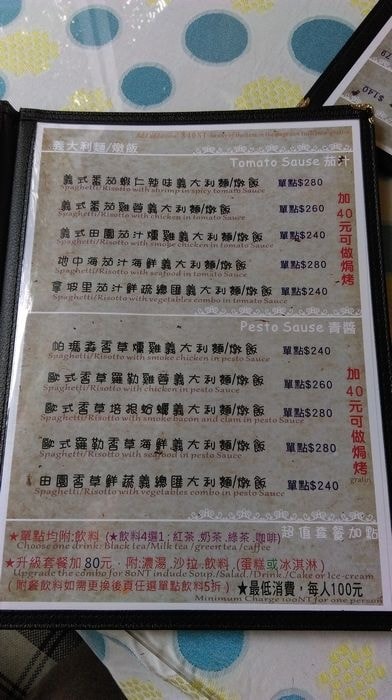 義大利麵/燉飯
Tomato Sause 茄汁
義式番茄蝦仁辣味義大利麵/燉飯 單點$280
Spaghetti/Risotto with shrimp in spicy tomato Sauce
義式番茄雞蓉義大利麵/燉飯 單點$260
Spaghetti/Risotto with chicken in tomato Sauce
義式田園茄汁燻雞義大利麵/燉飯 單點$240
Spaghetti/Risotto with smoke chicken in tomato Sauce
地中海茄汁海鮮義大利麵/燉飯 單點$280
Spaghetti/Risotto with seafood in tomato Sauce
拿坡里茄汁鮮疏總匯義大利麵/燉飯 單點$240
Spaghetti/Risotto with vegetables combo in tomato Sauce
加40元可做焗烤
Pesto Sause 青醬
帕瑪森香草燻雞義大利麵/燉飯 單點$240
Spaghetti/Risotto with smoke chicken in pesto Sauce
歐式香草羅勒雞蓉義大利麵/燉飯 單點$260
Spaghetti/Risotto with chicken in pesto Sauce
歐式香草培根蛤蠣義大利麵/燉飯 單點$280
Spaghetti/Risotto with smoke bacon and clam in pesto Sauce
歐式羅勒香草海鮮義大利麵/燉飯 單點$280
Spaghetti/Risotto with seafood in pesto Sauce
田園香草鮮蔬義總匯大利麵/燉飯 單點$240
Spaghetti/Risotto with vegetables combo in pesto Sauce
加40元可做焗烤
gratin
超值套餐加點
★單點均附:飲料 (★飲料4選1:紅茶.奶茶.綠茶.咖啡)
Choose one drink: Black tea/Milk tea/green tea/caffee
★升級套餐加 80元．附:濃湯.沙拉.飲料.(蛋糕或冰淇淋)
Upgrade the combo for 80NT include Soup/Salad/Drink/Cake or Ice-cream
(附餐飲料如需更換後頁任選單點飲料5折) ★最低消費，每人100元
Minimum Charge 100NT for one person
$140